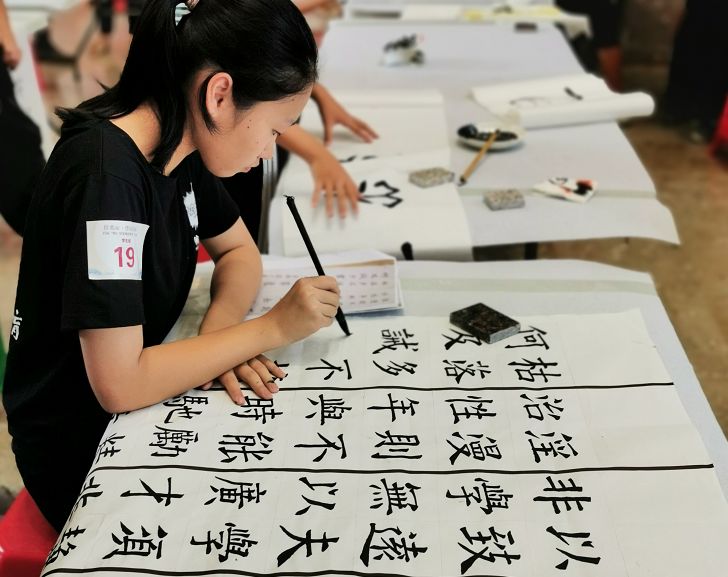 以致遠夫學須靜
非學無以廣才非
淫漫則不能勵
治性年與時馳
枯落多不
何及誡
19